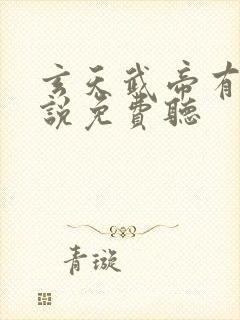 玄天武帝有
說免費聽
青璇